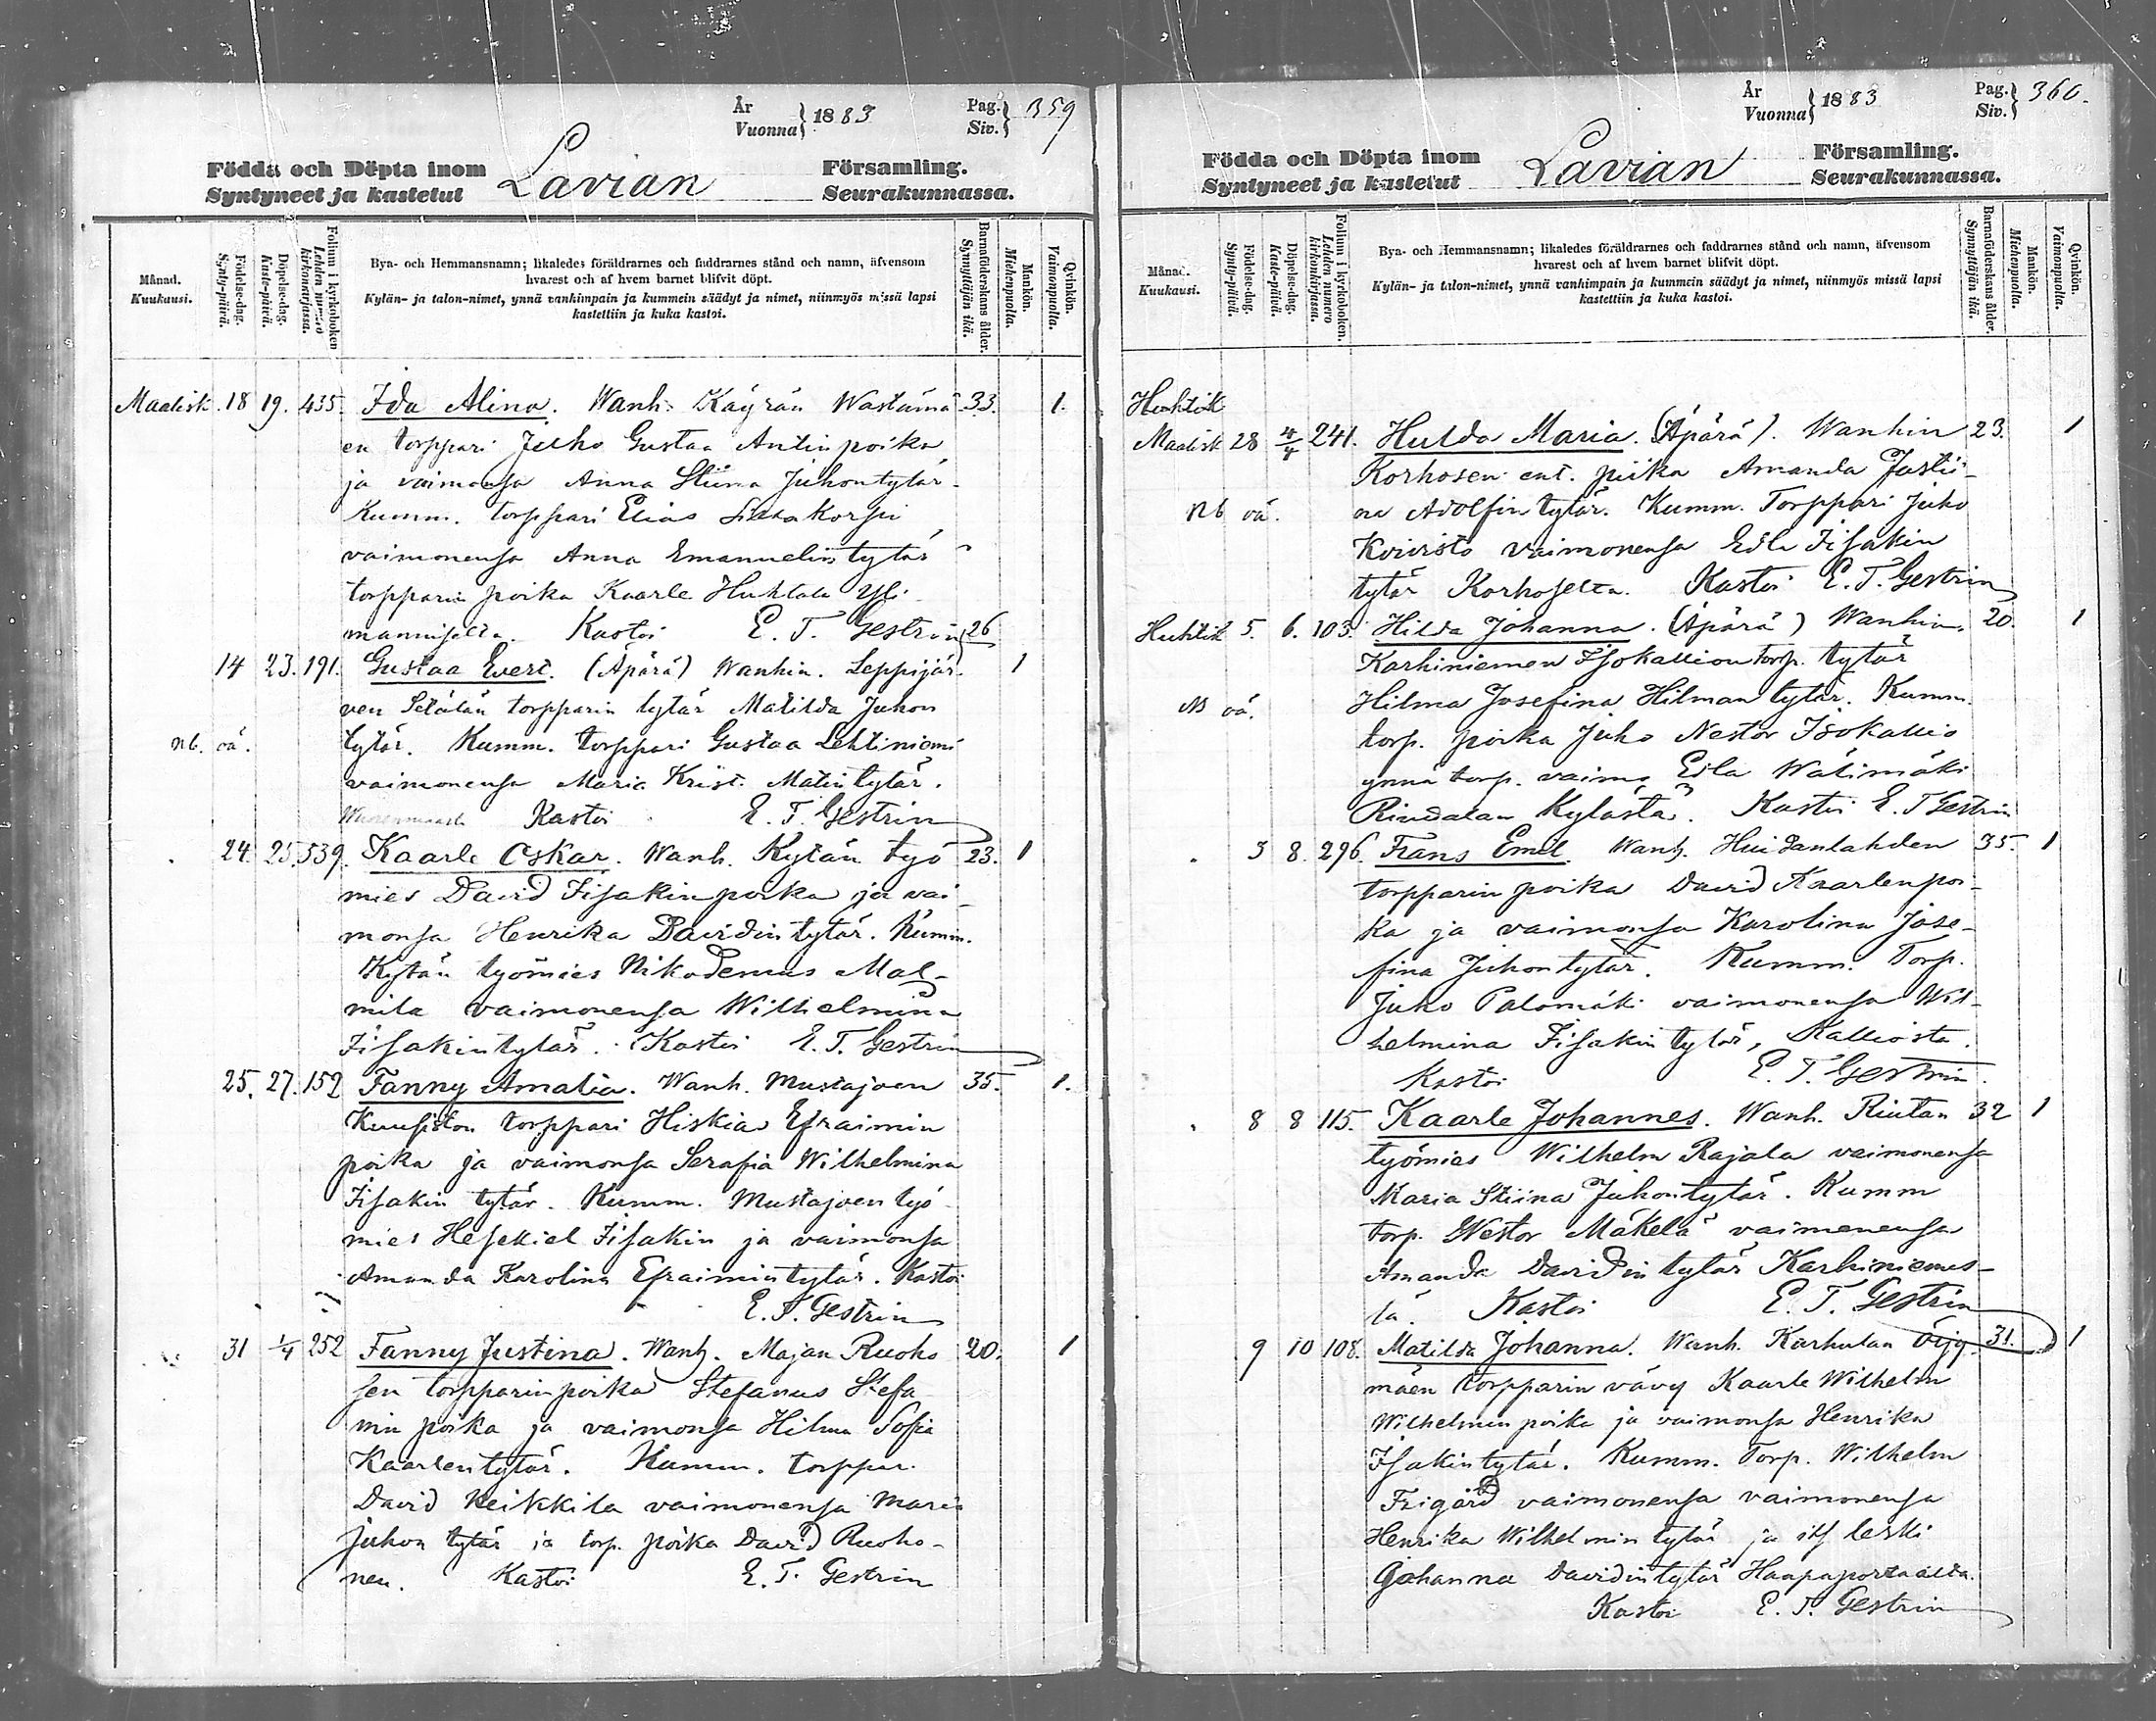 År
Vuonna } 1883
Pag.
Siv. } 359
Födda och Döpta inom
Syntyneet ja kastetut
Lavian
Församling.
Seurakunnassa.
Månad.
Kuukausi.
Födelse-dag.
Synty-päivä.
Döpelse-dag.
Kaste-päivä.
Folium i kyrkoboken
Lehden numero
kirkonkirjassa.
Bya- och Hemmansnamn; likaledes föräldrarnes och faddrarnes stånd och namn, äfvensom
hvarest och af hvem barnet blifvit döpt.
Kylän- ja talon-nimet, ynnä vankimpain ja kummein säädyt ja nimet, niinmyös missä lapsi
kastettiin ja kuka kastoi.
Barnaföderskans ålder.
Synnyttäjän ikä.
Mankön.
Miehenpuolta.
Qvinkön.
Vaimonpuolta.
Maalisk. 18 19. 435. Ida Alina. Wanh. Käyrän Wastamä 33. 1.
en torppari Juho Gustaa Antinpoika
ja vaimonsa Anna Stiina Juhontytär.
Kumm. torppari Elias
vaimonensa Anna Emanuelintytär
torpparin poika Kaarle Huhtala Yli-
manniselta. Kastoi E. T. Gestrin
14 23. 191. Gustaa Evert. (Äpärä) Wanhin. Leppijär- 26 1
ven Setälän torpparin tytär Matilda Juhon
nb. vä. tytär. Kumm. torppari Gustaa Lehtiniemi
vaimonensa Maria Krist. Matintytär.
Kastoi E. T. Gestrin
24. 25. 539. Kaarle Oskar. Wanh. Kytän työ 23. 1
mies David Iisakinpoika ja vai-
monsa Henrika Davidintytär. Kumm.
Kytän työmies Nikodemus Mal-
mila vaimonensa Wilhelmina
Iisakintytär. Kastoi E. T. Gestrin
25. 27. 152 Fanny Amalia. Wanh. Mustajoen 35. 1.
Kuusiston torppari Hiskias Efraimin
poika ja vaimonsa Serafia Wilhelmina
Iisakin tytär. Kumm. Mustajoen työ
mies Hesekiel Iisakin ja vaimonsa
Amanda Karolina Efraimintytär. Kastoi
E. T. Gestrin
31 1/4 252 Fanny Justina. Wanh. Majan Ruoho 20. 1
sen torpparinpoika Stefanus Stefa
nin poika ja vaimonsa Hilma Sofia
Kaarlentytär. Kumm. torppar.
David Heikkilä vaimonensa Maria
Juhon tytär ja torp. poika David Ruoho-
nen. Kastoi E. T. Gestrin
År
Vuonna } 1883
Pag.
Siv. } 360.
Födda och Döpta inom
Syntyneet ja kastetut
Lavian
Församling.
Seurakunnassa.
Månad.
Kuukausi.
Födelse-dag.
Synty-päivä.
Döpelse-dag.
Kaste-päivä.
Folium i kyrkoboken.
Lehden numero
kirkonkirjassa.
Bya- och Hemmansnamn; likaledes föräldrarnes och faddrarnes stånd och namn, äfvensom
hvarest och af hvem barnet blifvit döpt.
Kylän- ja talon-nimet, ynnä vanhimpain ja kummein säädyt ja nimet, niinmyös missä lapsi
kastettiin ja kuka kastoi.
Barnaföderskans ålder.
Synnyttäjän ikä.
Mankön.
Miehenpuolta.
Qvinkön.
Vaimonpuolta.
Huhtik
Maalisk 28 4/4 241. Hulda Maria. (Äpärä). Wanhin 23. 1
Korhosen ent. piika Amanda Justii-
Nb vä. na Adolfin tytär. Kumm. Torppari Juho
Koivisto vaimonensa Edla Iisakin
tytär Korhoselta. Kastoi E. T. Gestrin
Huhtik 5. 6. 103. Hilda Johanna. (Äpärä) Wanhin. 20. 1
Karhiniemen Isokallion torp. tytär
Nb vä. Hilma Josefina Hilman tytär. Kumm.
torp. poika Juho Nestor Isokallio
ynnä torp. vaimo Edla Wälimäki
Rindalan Kylästä. Kastoi E. T Gestrin
3 8. 296. Frans Emel. Wanh. Huidanlahden 35. 1
torpparin poika David Kaarlenpoi-
ka ja vaimonsa Karolina Jose-
fina Juhontytär. Kumm. Torp.
Juho Palomäki vaimonensa Wil-
helmina Iisakin tytär, Kalliosta.
Kastoi E. T. Gestrin.
8 8 115. Kaarle Johannes. Wanh. Riutan 32 1
työmies Wilhelm Rajala vaimonensa
Maria Stiina Juhontytär. Kumm
torp. Nestor Mäkelä vaimenensa
Amanda Davidin tytär Karhiniemes-
tä. Kastoi E. T. Gestrin
9 10 108. Matilda Johanna. Wanh. Karhulan Örjq. 31. 1
mäen torpparin vävy Kaarle Wilhelm
Wilhelmin poika ja vaimonsa Henrika
Isakintytär. Kumm. Torp. Wilhelm
Frigård vaimonensa vaimonensa
Henrika Wilhelmin tytär ja itf leski
Johanna Davidintytär Haapaportaalta.
Kastoi E. T. Gestrin